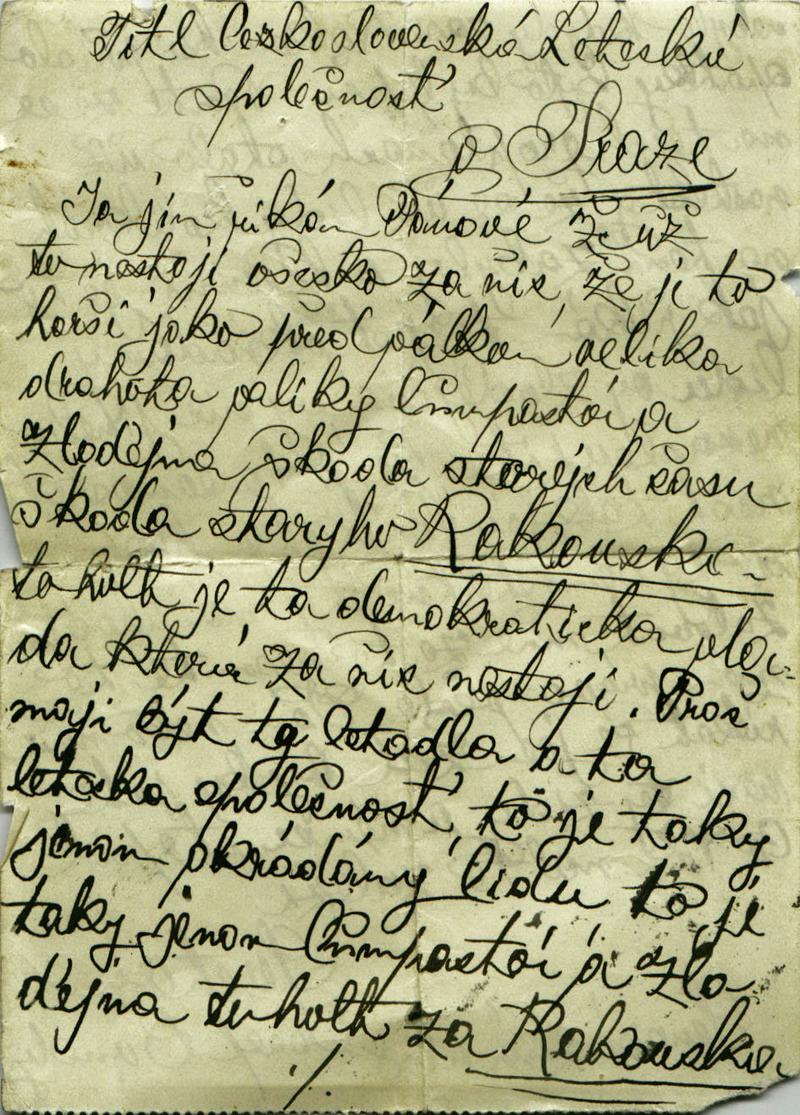 Titl Československá Letecká
společnosť
v Praze
Ja jim řikám Pánové že už
tu nestoji všesko za nic, že ji to
horši jako před válkou velika
drahota veliky lumpactvi a
zlodějna škoda starejch časů
škoda staryho Rakouska -
to holt je ta demokraticka vla-
da která za nic nestoji. Proč
maji být ty letadla a ta
letecka společnosť, to je taky
jenom okrádány lidu to je
taky jenom lumpactvi a zlo
dějna tu holt za Rakouska
./.